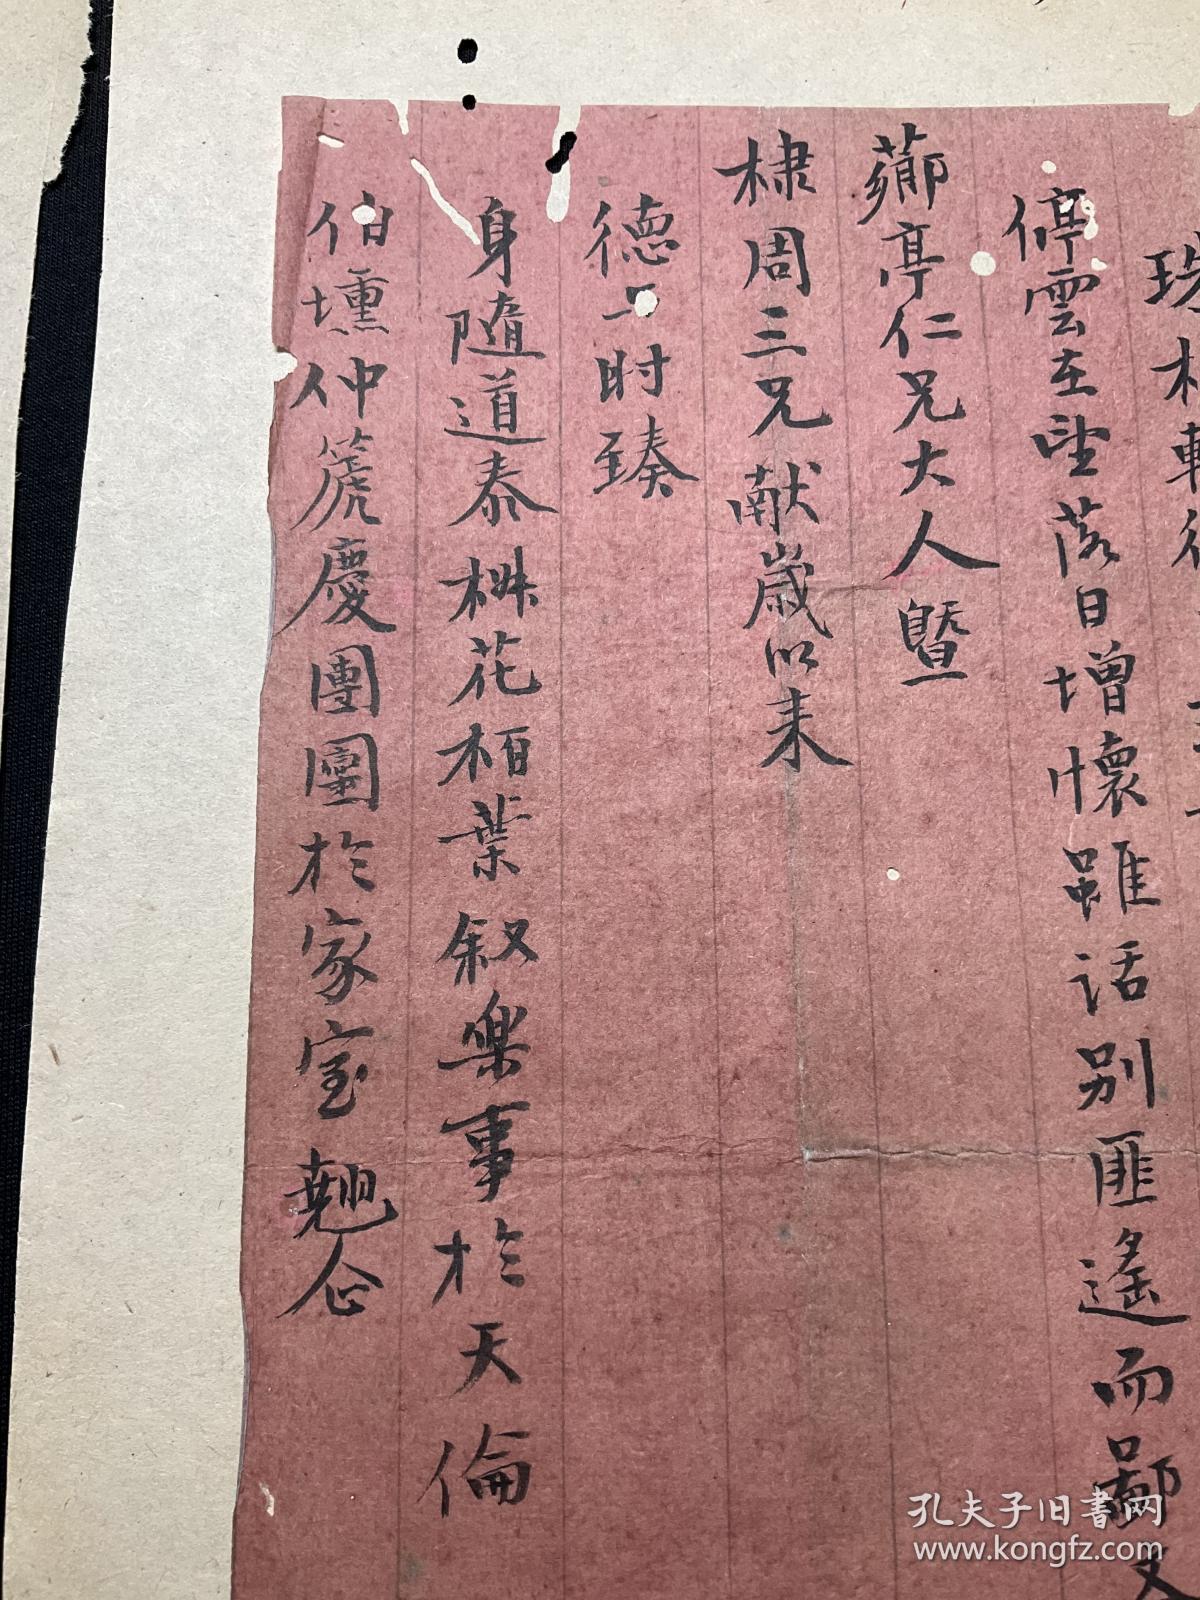 停雲在望落日增懷雖話別匪遙而鄙
薌亭仁兄大人暨
棣周三兄獻歲以来
德与时臻
身隨道泰椒花栢葉叙樂事於天倫
伯壎仲篪慶團圞於家室翹企
孔夫子旧书网
www.kongfz.com